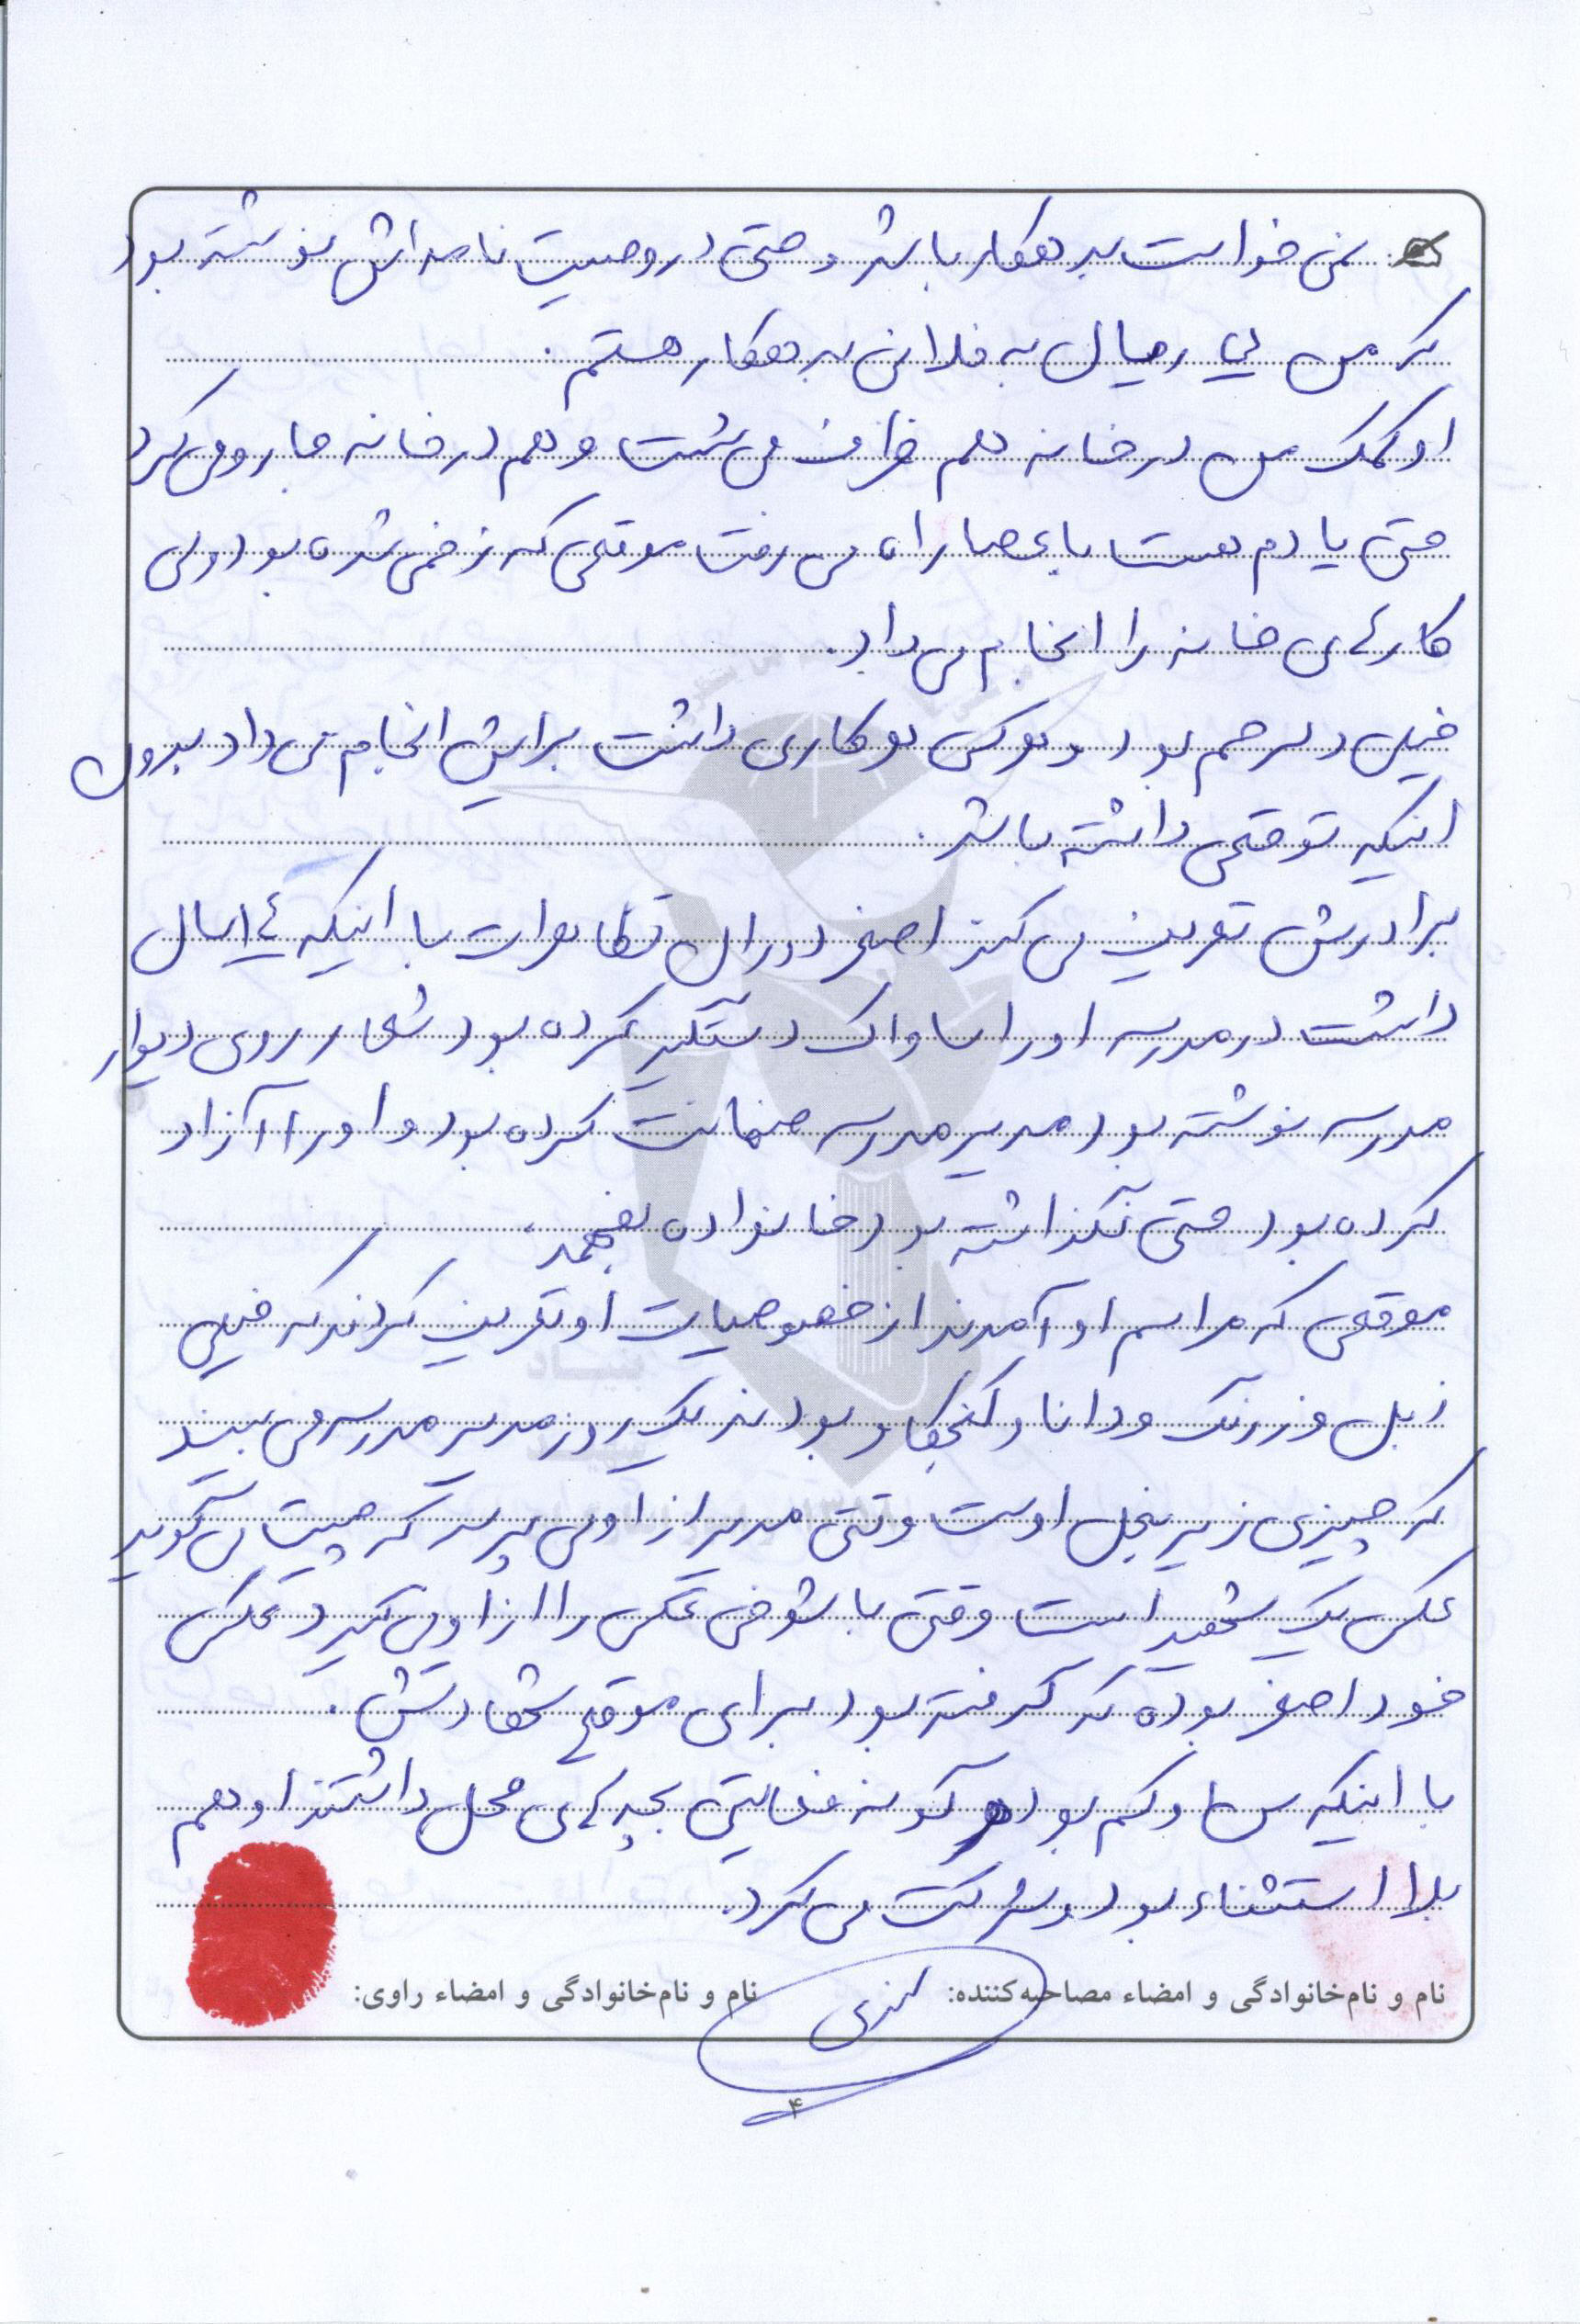 نمی خواست بدهکار باشد و حتی در وصیت نامه اش نوشته بود
که من ریال به فلانی بدهکار هستم .
او کمک من در خانه هم ظرف می شست و هم در خانه جارو می کرد
حتی یادم هست با عصا راه می رفت موقعی که زخمی شده بود ولی
کارهای خانه را انجام می داد.
خیلی دلرحم بود و هر کس هر کاری داشت برایش انجام می داد بدون
اینکه توقعی داشته باشد .
برادرش تعریف می کند اصغر دوران تظاهرات با اینکه ۱۴ سال
داشت در مدرسه او را ساواک دستگیر کرده بود شعار روی دیوار
مدرسه نوشته بود مدیر مدرسه ضمانت کرده بود و او را آزاد
کرده بود حتی نگذاشته بود خانواده بفهمد.
موقعی که مراسم او آمدند از خصوصیات او تعریف کردند که خیلی
زبل و زرنگ و دانا و کنجکاو بودند یک روز مدیر مدرسه می بیند
که چیزی زیر بغل اوست وقتی مدیر از او می پرسد که چیست می گوید
عکس یک شهید است وقتی با شوخی عکس را از او می گیرد عکس
خود اصغر بوده که گرفته بود برای موقع شهادتش .
با اینکه سن او کم بود هر گونه فعالیتی بچه های محل داشتند او هم
بلا استثناء بود و شرکت می کرد.
نام و نام‌خانوادگی و امضاء مصاحبه‌کننده: نام و نام‌خانوادگی و امضاء راوی:
۴